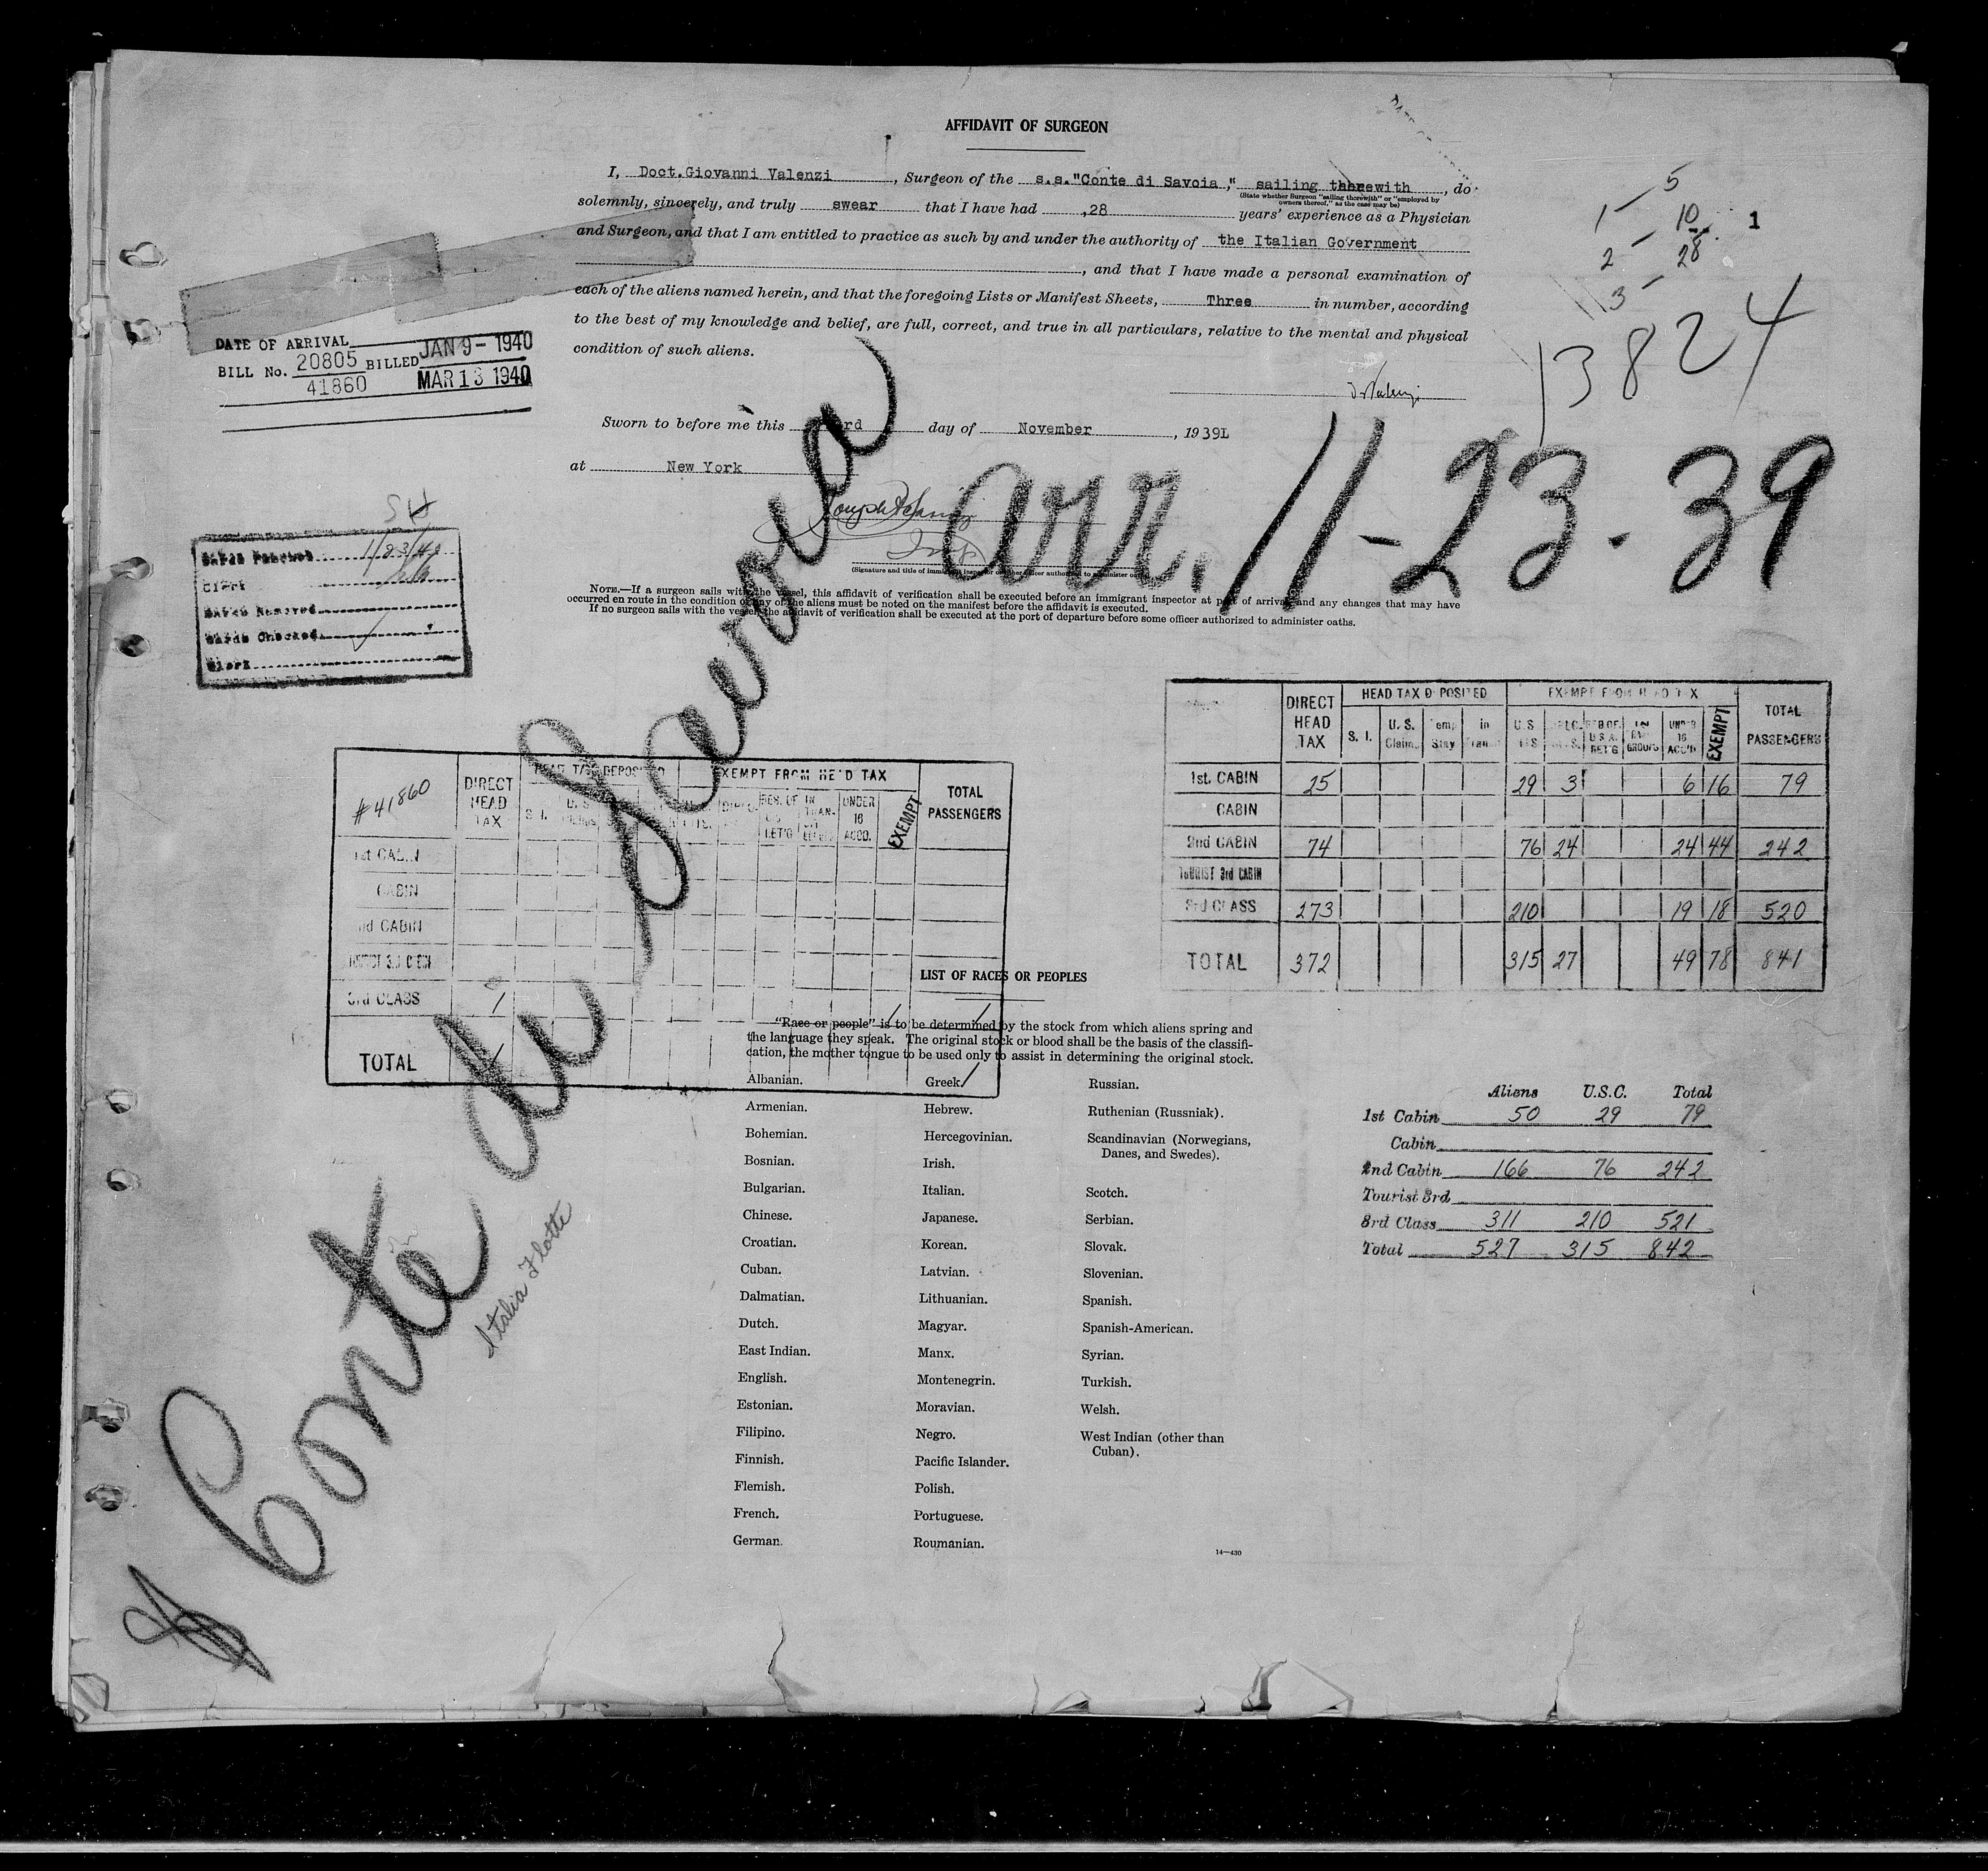 AFFIDAVIT OF SURGEON
I, Doct.Giovanni Valenzi, Surgeon of the s.s."Conte di Savoia," sailing therewith, do
(State whether Surgeon "sailing therewith" or "employed by
owners thereof," as the case may be)
solemnly, sincerely, and truly swear that I have had ,28 years' experience as a Physician
and Surgeon, and that I am entitled to practice as such by and under the authority of the Italian Government
, and that I have made a personal examination of
each of the aliens named herein, and that the foregoing Lists or Manifest Sheets, Three in number, according
to the best of my knowledge and belief, are full, correct, and true in all particulars, relative to the mental and physical
condition of such aliens.
5
1 10 1
2 28
3
13824
DATE OF ARRIVAL
BILL No. 20805 BILLED JAN 9- 1940
41860 MAR 13 1940
Sworn to before me this rd day of November, 1939L
at New York
arr. 11-23-39
NOTE.—If a surgeon sails with the vessel, this affidavit of verification shall be executed before an immigrant inspector at port of arrival and any changes that may have
occurred en route in the condition of any of the aliens must be noted on the manifest before the affidavit is executed.
If no surgeon sails with the vessel the affidavit of verification shall be executed at the port of departure before some officer authorized to administer oaths.
Cards Punched 1/23/40
Cards Checked
Clerk
Conte di Savoia
Italia Flotte
DIRECT HEAD TAX HEAD TAX DEPOSITED EXEMPT FROM HEAD TAX TOTAL PASSENGERS
S. I. U. S. Claim. Temp Stay in Transit U.S. UNDER 16 ACC'D EXEMPT
1st. CABIN 25 29 3 6 16 79
CABIN
2nd CABIN 74 76 24 24 44 242
TOURIST 3rd CABIN
3rd CLASS 273 210 19 18 520
TOTAL 372 315 27 49 78 841
#41860 DIRECT HEAD TAX HEAD TAX DEPOSITED EXEMPT FROM HEAD TAX TOTAL PASSENGERS
S. I. UNDER 16 ACCD. EXEMPT
1st CABIN
CABIN
2nd CABIN
TOURIST 3rd CABIN
3rd CLASS 1 1 1
TOTAL 1 1
LIST OF RACES OR PEOPLES
"Race or people" is to be determined by the stock from which aliens spring and
the language they speak. The original stock or blood shall be the basis of the classifi-
cation, the mother tongue to be used only to assist in determining the original stock.
Albanian.
Armenian.
Bohemian.
Bosnian.
Bulgarian.
Chinese.
Croatian.
Cuban.
Dalmatian.
Dutch.
East Indian.
English.
Estonian.
Filipino.
Finnish.
Flemish.
French.
German.
Greek.
Hebrew.
Hercegovinian.
Irish.
Italian.
Japanese.
Korean.
Latvian.
Lithuanian.
Magyar.
Manx.
Montenegrin.
Moravian.
Negro.
Pacific Islander.
Polish.
Portuguese.
Roumanian.
Russian.
Ruthenian (Russniak).
Scandinavian (Norwegians,
Danes, and Swedes).
Scotch.
Serbian.
Slovak.
Slovenian.
Spanish.
Spanish-American.
Syrian.
Turkish.
Welsh.
West Indian (other than
Cuban).
14—430
Aliens U.S.C. Total
1st Cabin 50 29 79
Cabin
2nd Cabin 166 76 242
Tourist 3rd
3rd Class 311 210 521
Total 527 315 842